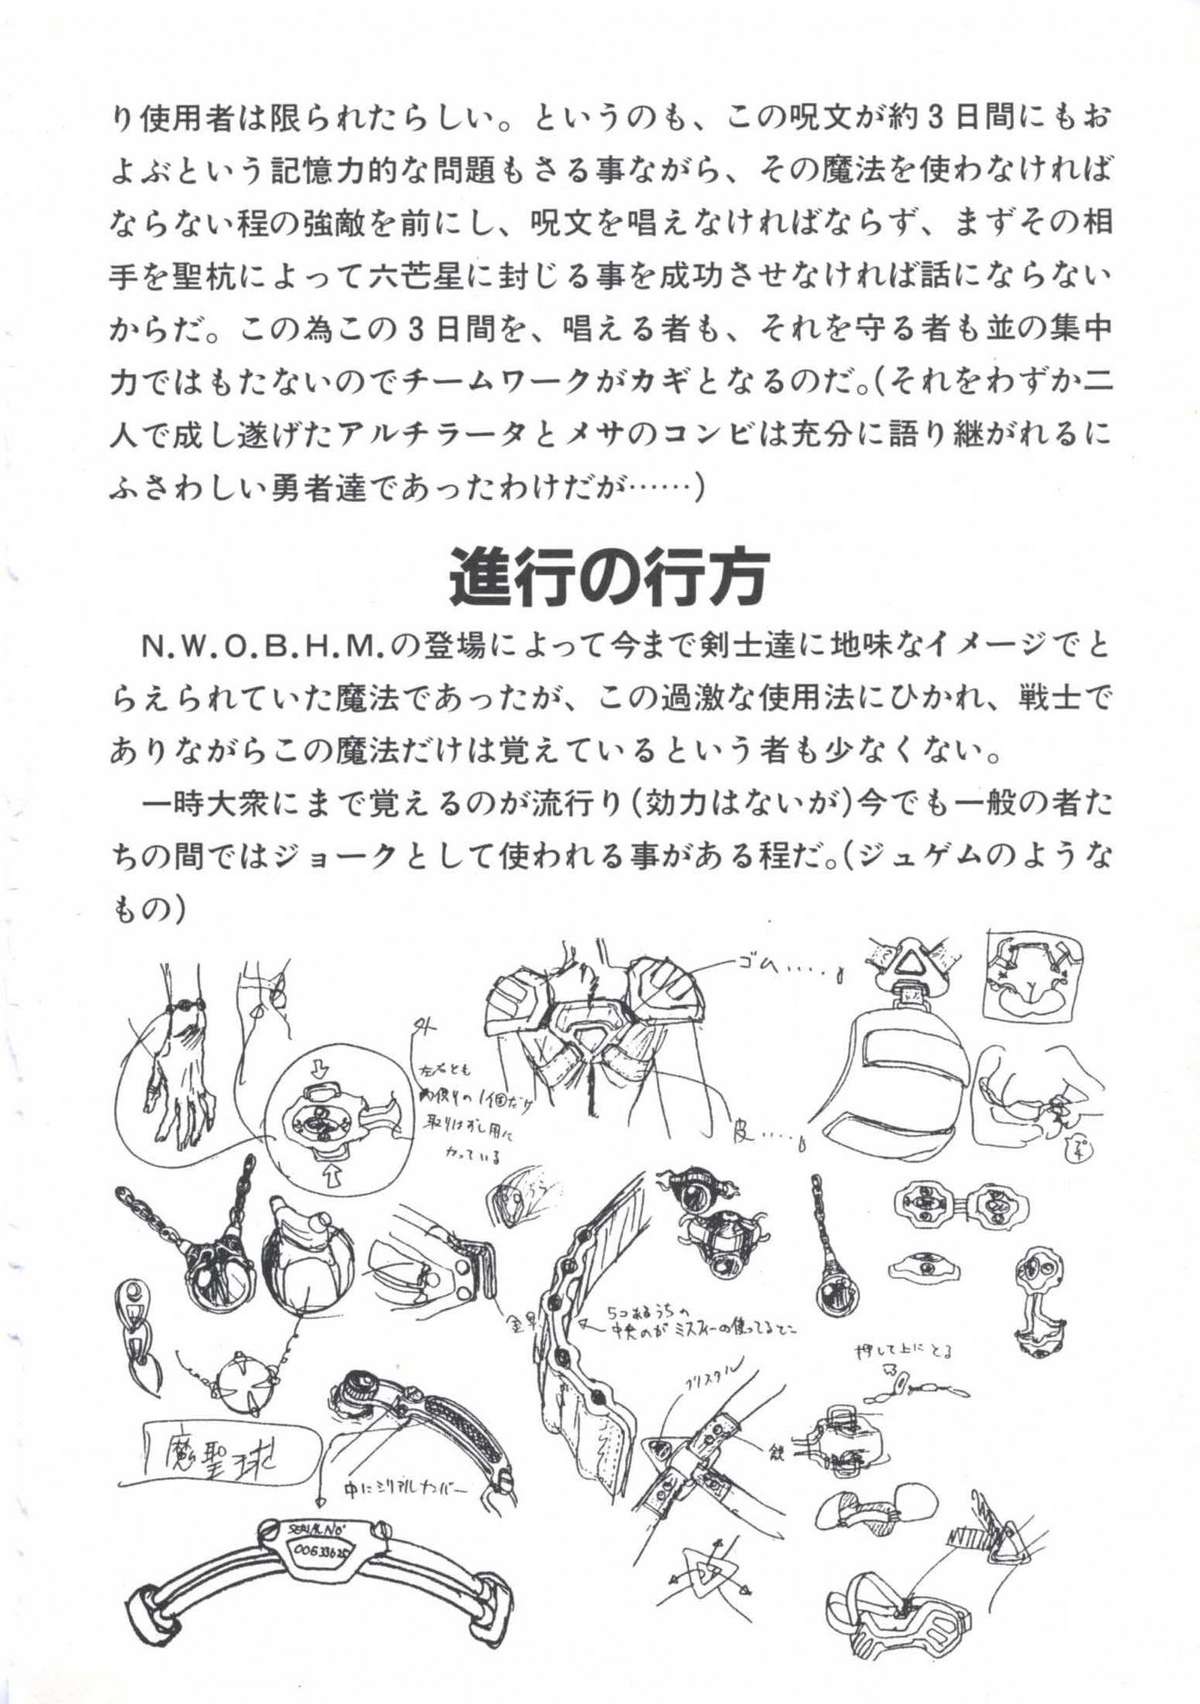 り使用者は限られたらしい。というのも、この呪文が約3日間にもお
よぶという記憶力的な問題もさる事ながら、その魔法を使わなければ
ならない程の強敵を前にし、呪文を唱えなければならず、まずその相
手を聖杭によって六芒星に封じる事を成功させなければ話にならない
からだ。この為この3日間を、唱える者も、それを守る者も並の集中
力ではもたないのでチームワークがカギとなるのだ。(それをわずか二
人で成し遂げたアルチラータとメサのコンビは充分に語り継がれるに
ふさわしい勇者達であったわけだが……)
進行の行方
N.W.O.B.H.M.の登場によって今まで剣士達に地味なイメージでと
らえられていた魔法であったが、この過激な使用法にひかれ、戦士で
ありながらこの魔法だけは覚えているという者も少なくない。
一時大衆にまで覚えるのが流行り(効力はないが)今でも一般の者た
ちの間ではジョークとして使われる事がある程だ。(ジュゲムのような
もの)
ゴム……。
外
左右とも
両使りの1個だけ
取りはずし用に
なっている
皮……。
5つあるうちの
中央のがミスティーの使ってるとこ
押して上にとる
クリスタル
魔聖球
中にシリアルナンバー
SERIAL No